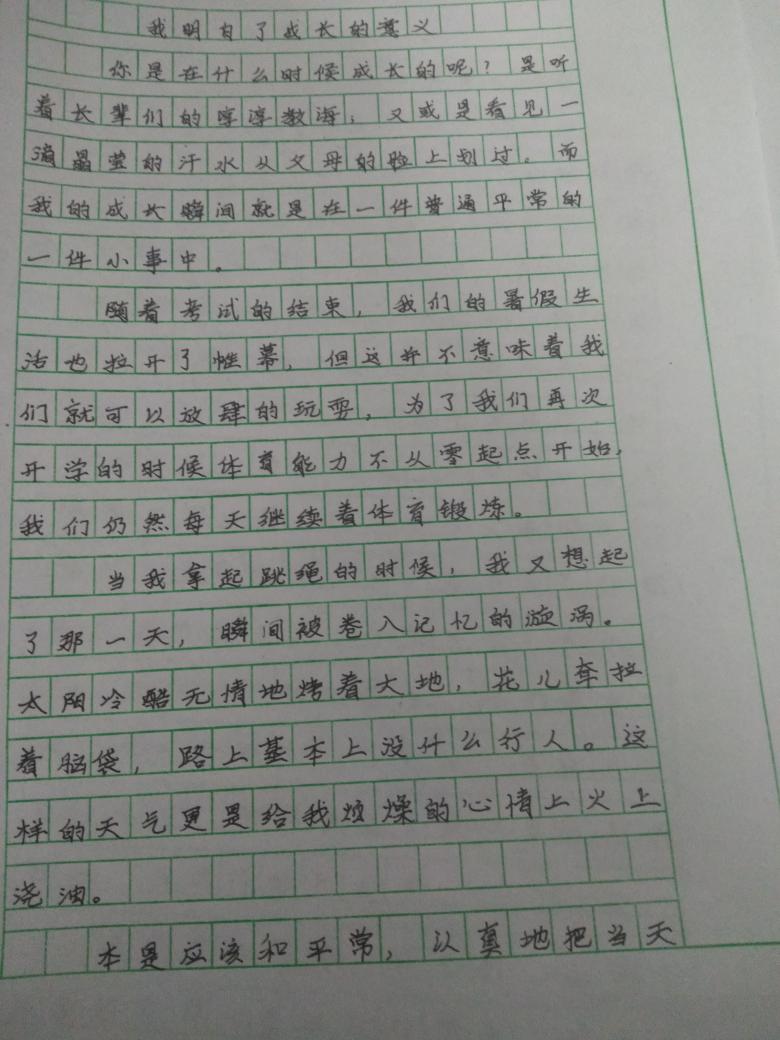 我明白了成长的意义
你是在什么时候成长的呢？是听
着长辈们的谆谆教海，又或是看见一
滴晶莹的汗水从父母的脸上划过。而
我的成长瞬间就是在一件普通平常的
一件小事中。
随着考试的结束，我们的暑假生
活也拉开了帷幕，但这并不意味着我
们就可以放肆的玩耍，为了我们再次
开学的时候体育能力不从零起点开始，
我们仍然每天继续着体育锻炼。
当我拿起跳绳的时候，我又想起
了那一天，瞬间被卷入记忆的漩涡。
太阳冷酷无情地烤着大地，花儿牵拉
着脑袋，路上基本上没什么行人。这
样的天气更是给我烦燥的心情上火上
浇油。
本是应该和平常，认真地把当天